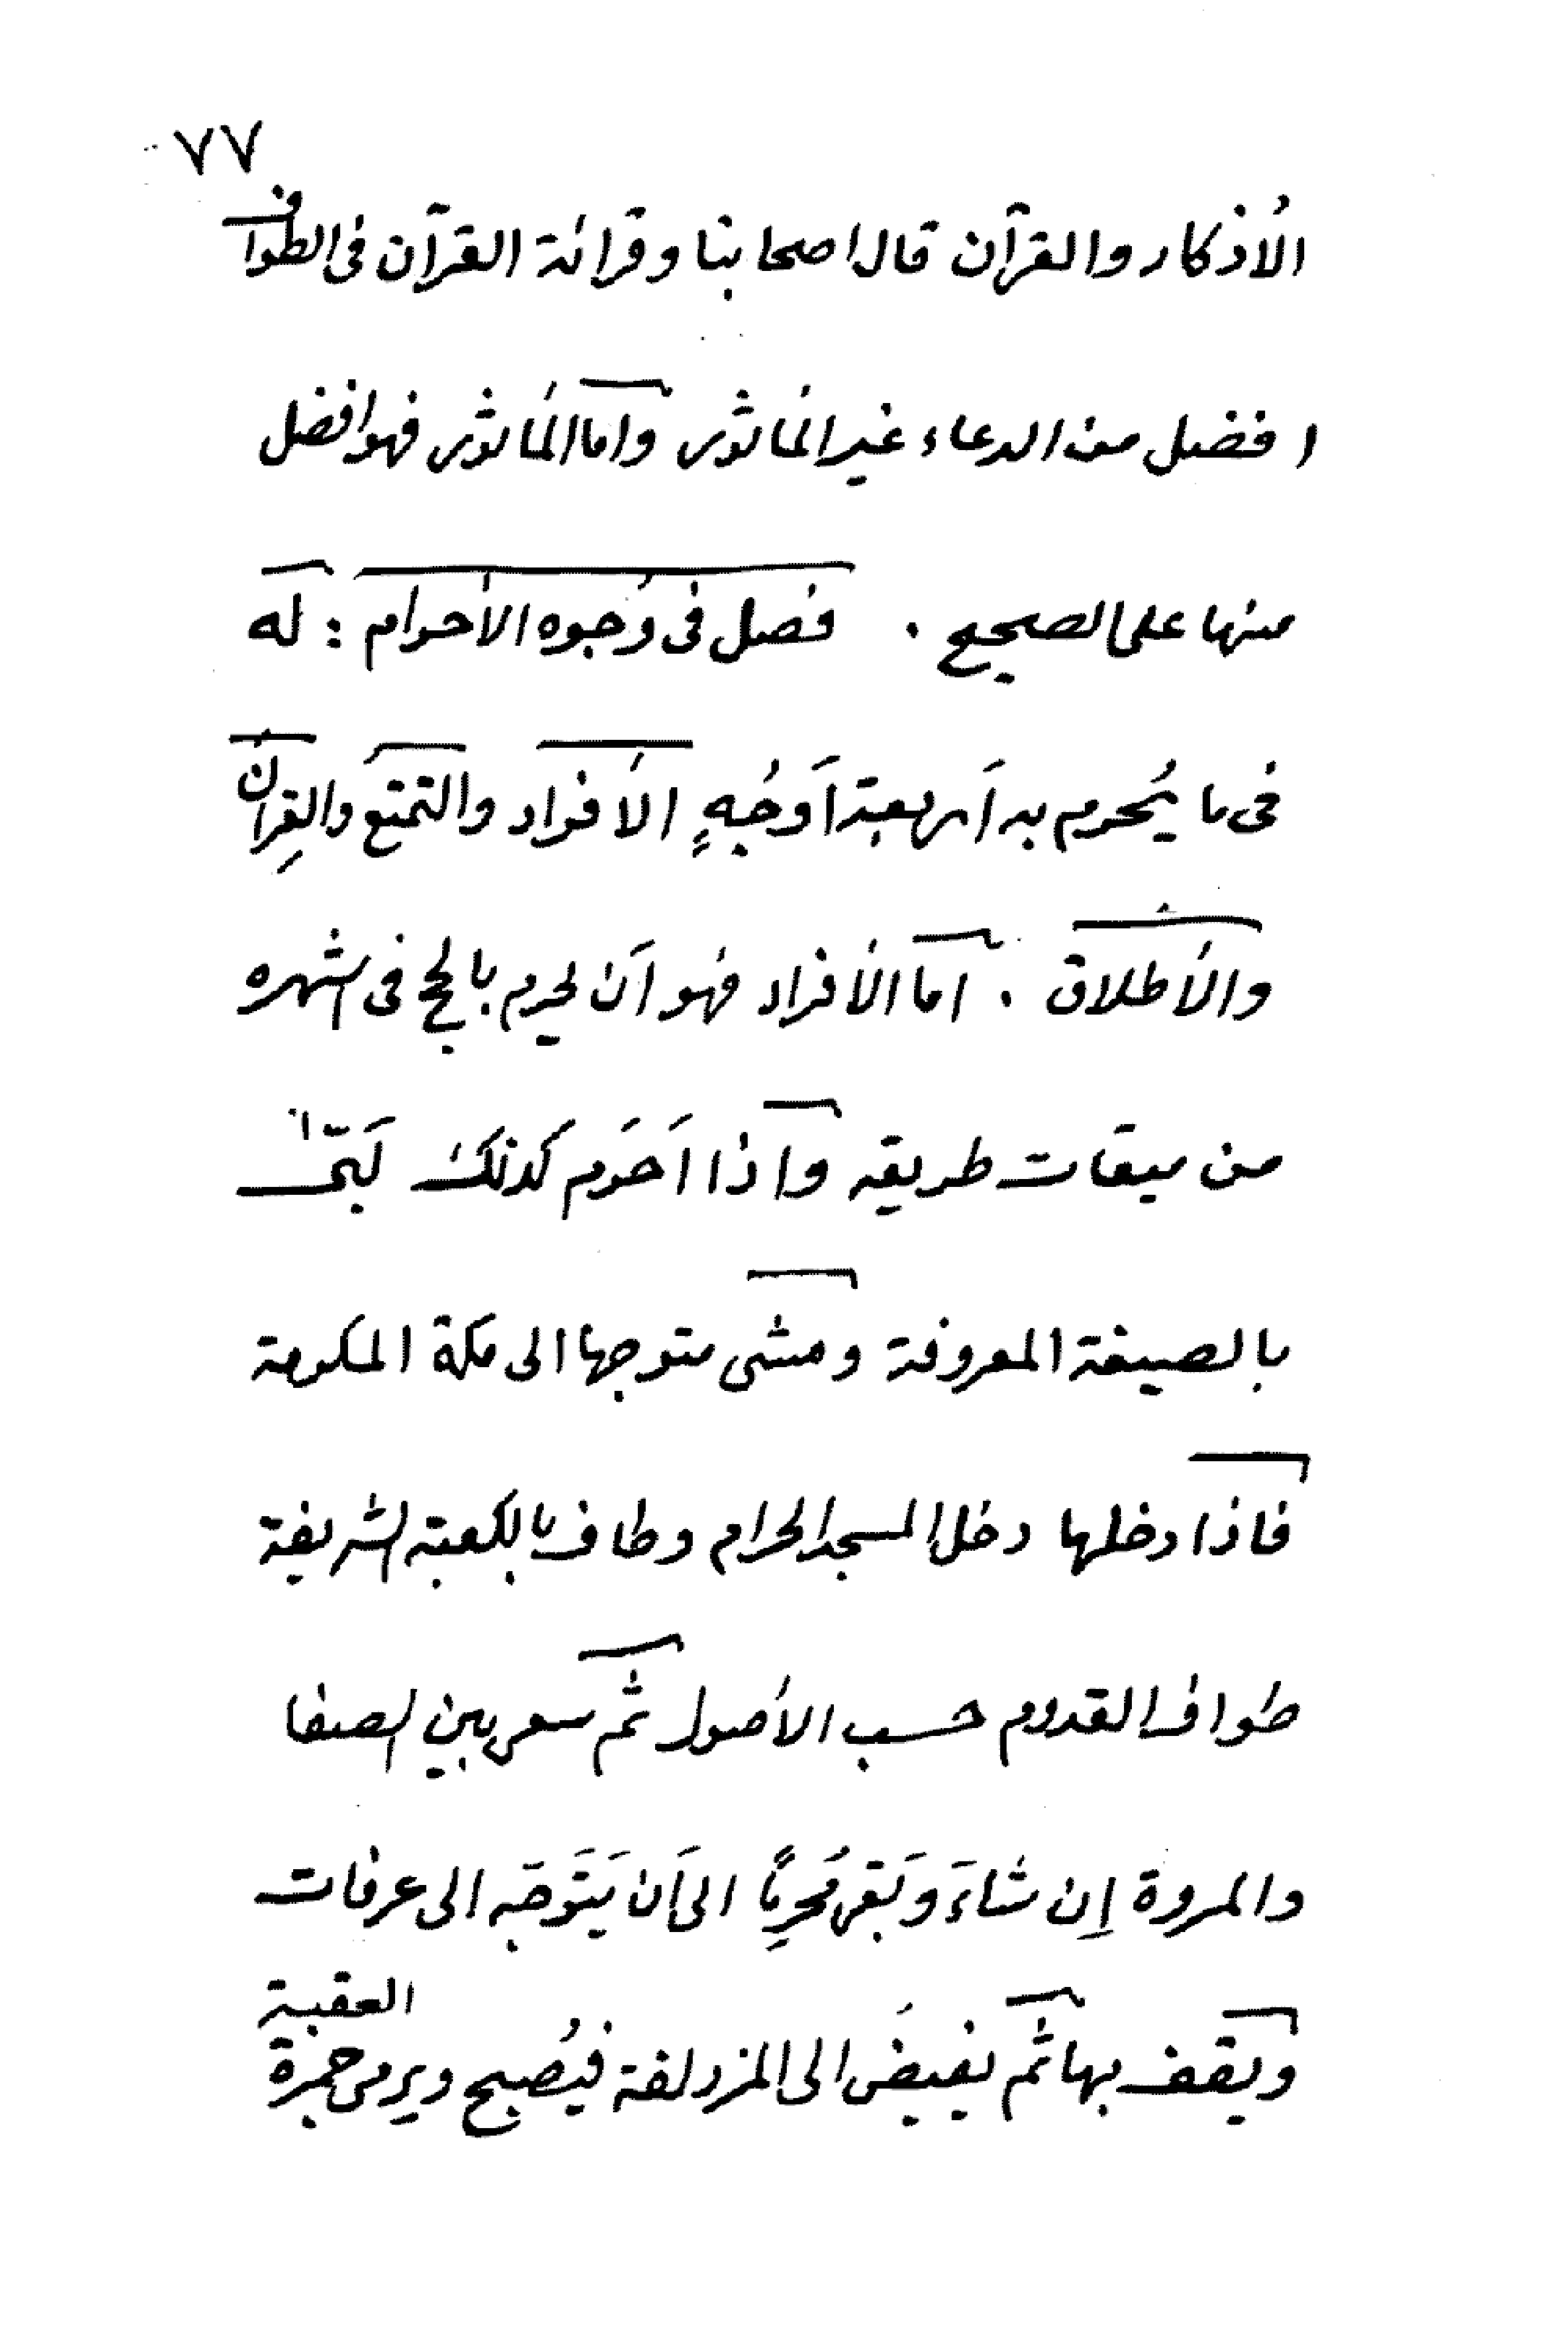 ٧٧
الأذكار والقرآن قال اصحابنا وقرائة القرآن فى الطواف
افضل من الدعاء غير المأثور واما المأثور فهو افضل
منها على الصحيح . فصل فى وُجوه الأحرام : له
فى ما يُحرم به أَربعة أَوجُهٍ الأفراد والتمتع والقِرانُ
والأطلاق . اما الأفراد فهو أن يحرم بالحج فى اشهره
من ميقات طريقه واذا اَحَرَم كَذلك لَبّىٰ
بالصيغة المعروفة ومشى متوجها الى مكة المكرمة
فاذا دخلها دخل المسجد الحرام وطاف بالكعبة الشريفة
طواف القدوم حسب الأصول ثم سعى بين الصفا
والمروة إِن شاءَ وَبقى مُحرِمًا الى أَن يَتَوَجّه الى عرفات
ويقف بها ثم يفيضَ الى المزدلفة فيُصبح ويرمى جمرة
العقبة